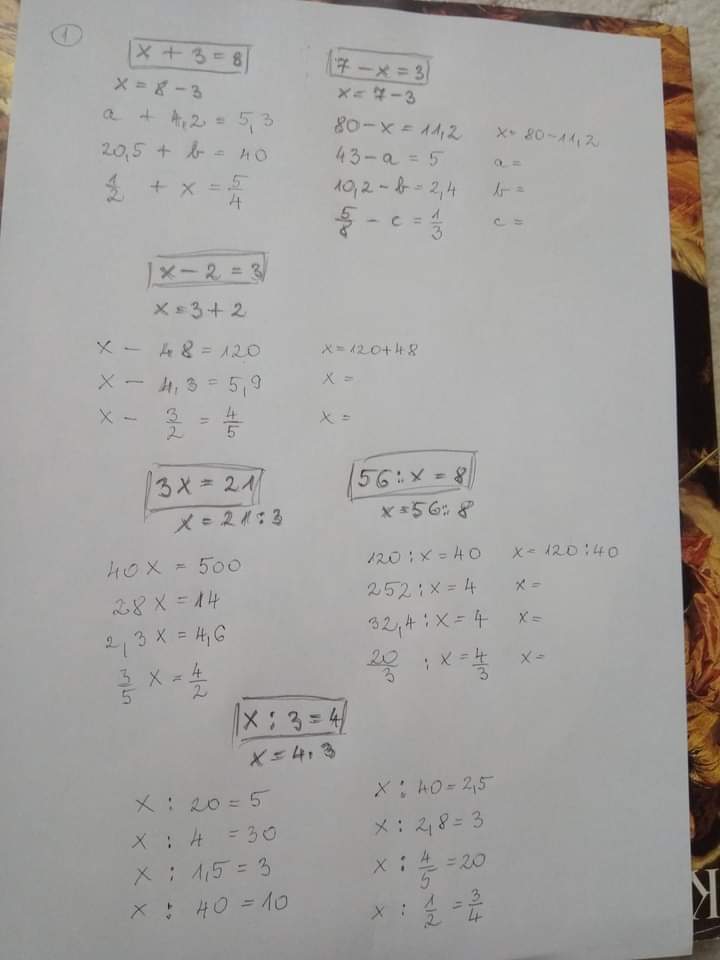 1
x + 3 = 8
x = 8 - 3
a + 4,2 = 5,3
20,5 + b = 40
1/2 + x = 5/4
7 - x = 3
x = 7 - 3
80 - x = 11,2 x = 80 - 11,2
43 - a = 5 a =
10,2 - b = 2,4 b =
5/8 - c = 1/3 c =
x - 2 = 3
x = 3 + 2
x - 48 = 120 x = 120 + 48
x - 4,3 = 5,9 x =
x - 3/2 = 4/5 x =
3x = 21
x = 21 : 3
40x = 500
28x = 14
2,3x = 4,6
3/5 x = 4/2
56 : x = 8
x = 56 : 8
120 : x = 40 x = 120 : 40
252 : x = 4 x =
32,4 : x = 4 x =
20/3 : x = 4/3 x =
x : 3 = 4
x = 4 . 3
x : 20 = 5
x : 4 = 30
x : 1,5 = 3
x : 40 = 10
x : 40 = 2,5
x : 2,8 = 3
x : 4/5 = 20
x : 1/2 = 3/4
K